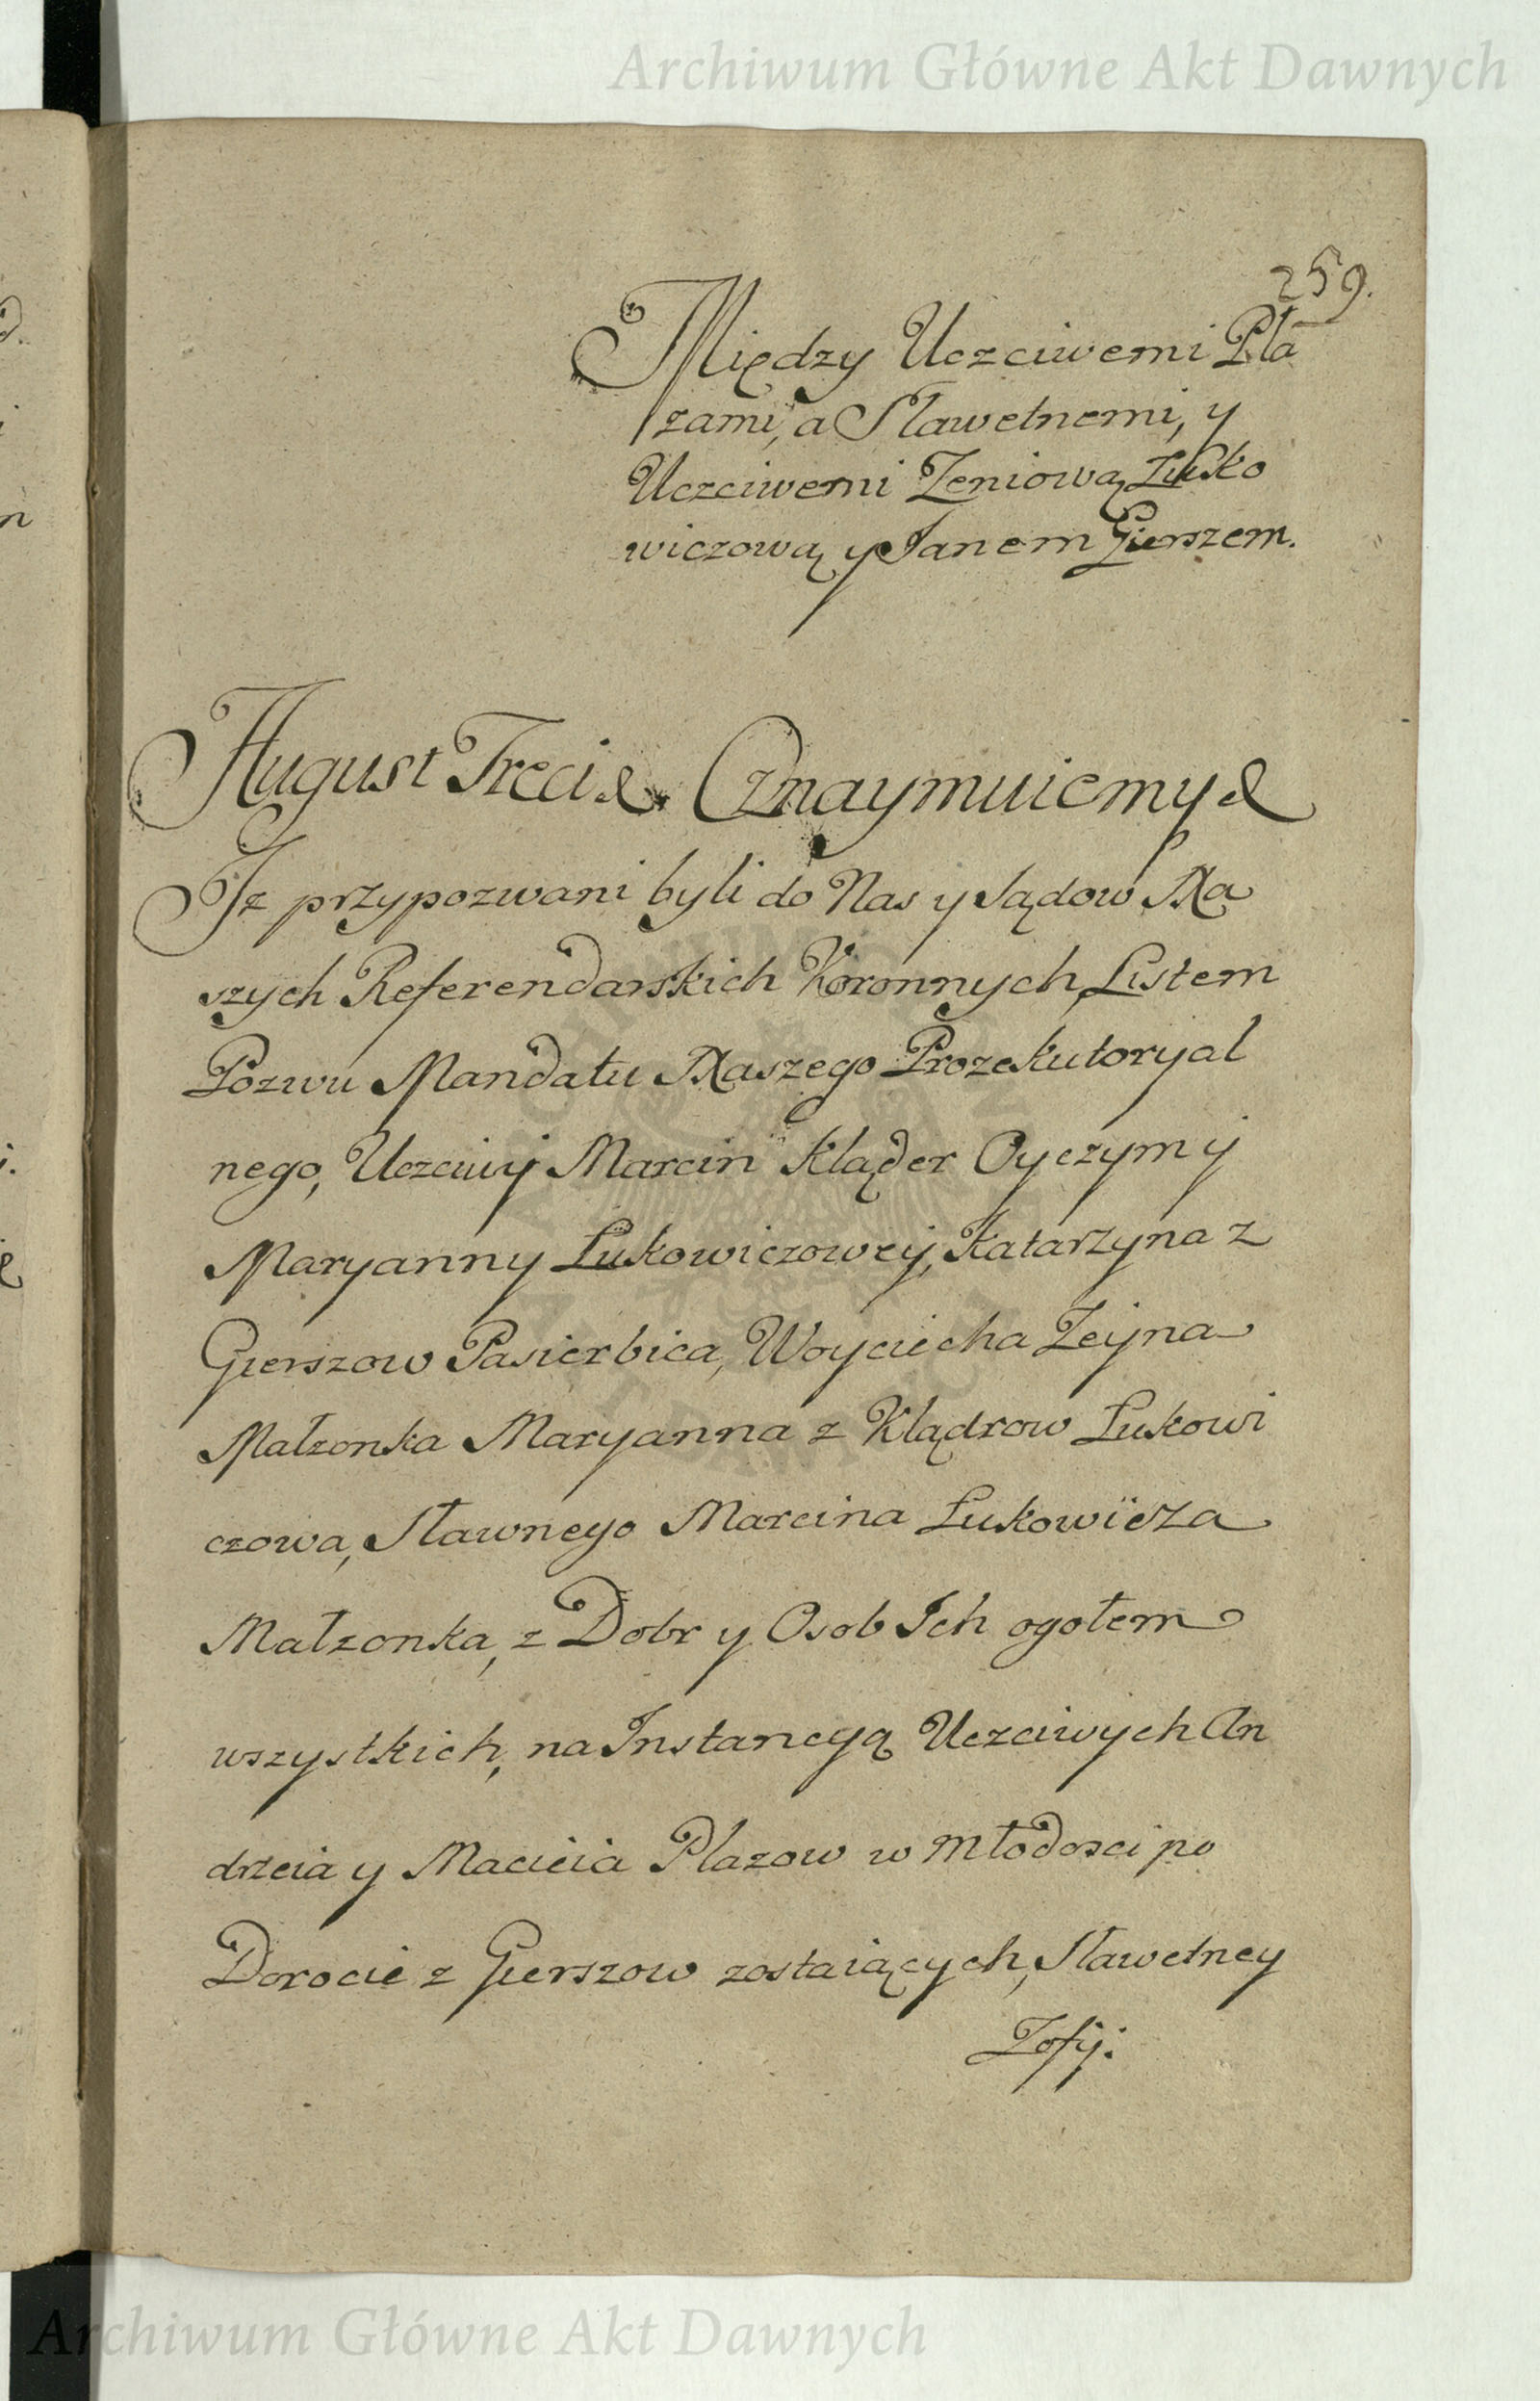 Archiwum Główne Akt Dawnych
259.
Między Uczciwemi Pla
zami, a Sławetnemi, y
Uczciwemi Zeniową Luko
wiczową y Janem Gierszem.
August Trzeci &. Oznaymuiemy &
Jż przypozwani byli do Nas y Sądow Na
szych Referendarskich Koronnych, Listem
Pozwu Mandatu Naszego Prozekutoryal
nego, Uczciwy Marcin Kląder Oyczym y
Maryanny Lukowiczowey, Katarzyna z
Gierszow Pasierbica, Woyciecha Zeyna
Małzonka Maryanna z Klądrow Lukowi
czowa, Sławnego Marcina Lukowicza
Małzonka, z Dobr y Osob Ich ogołem
wszystkich, na Instancyą Uczciwych An
drzeia y Macieia Plazow w młodosci po
Dorocie z Gierszow zostaiących, Sławetney
Zofÿ:
Archiwum Główne Akt Dawnych